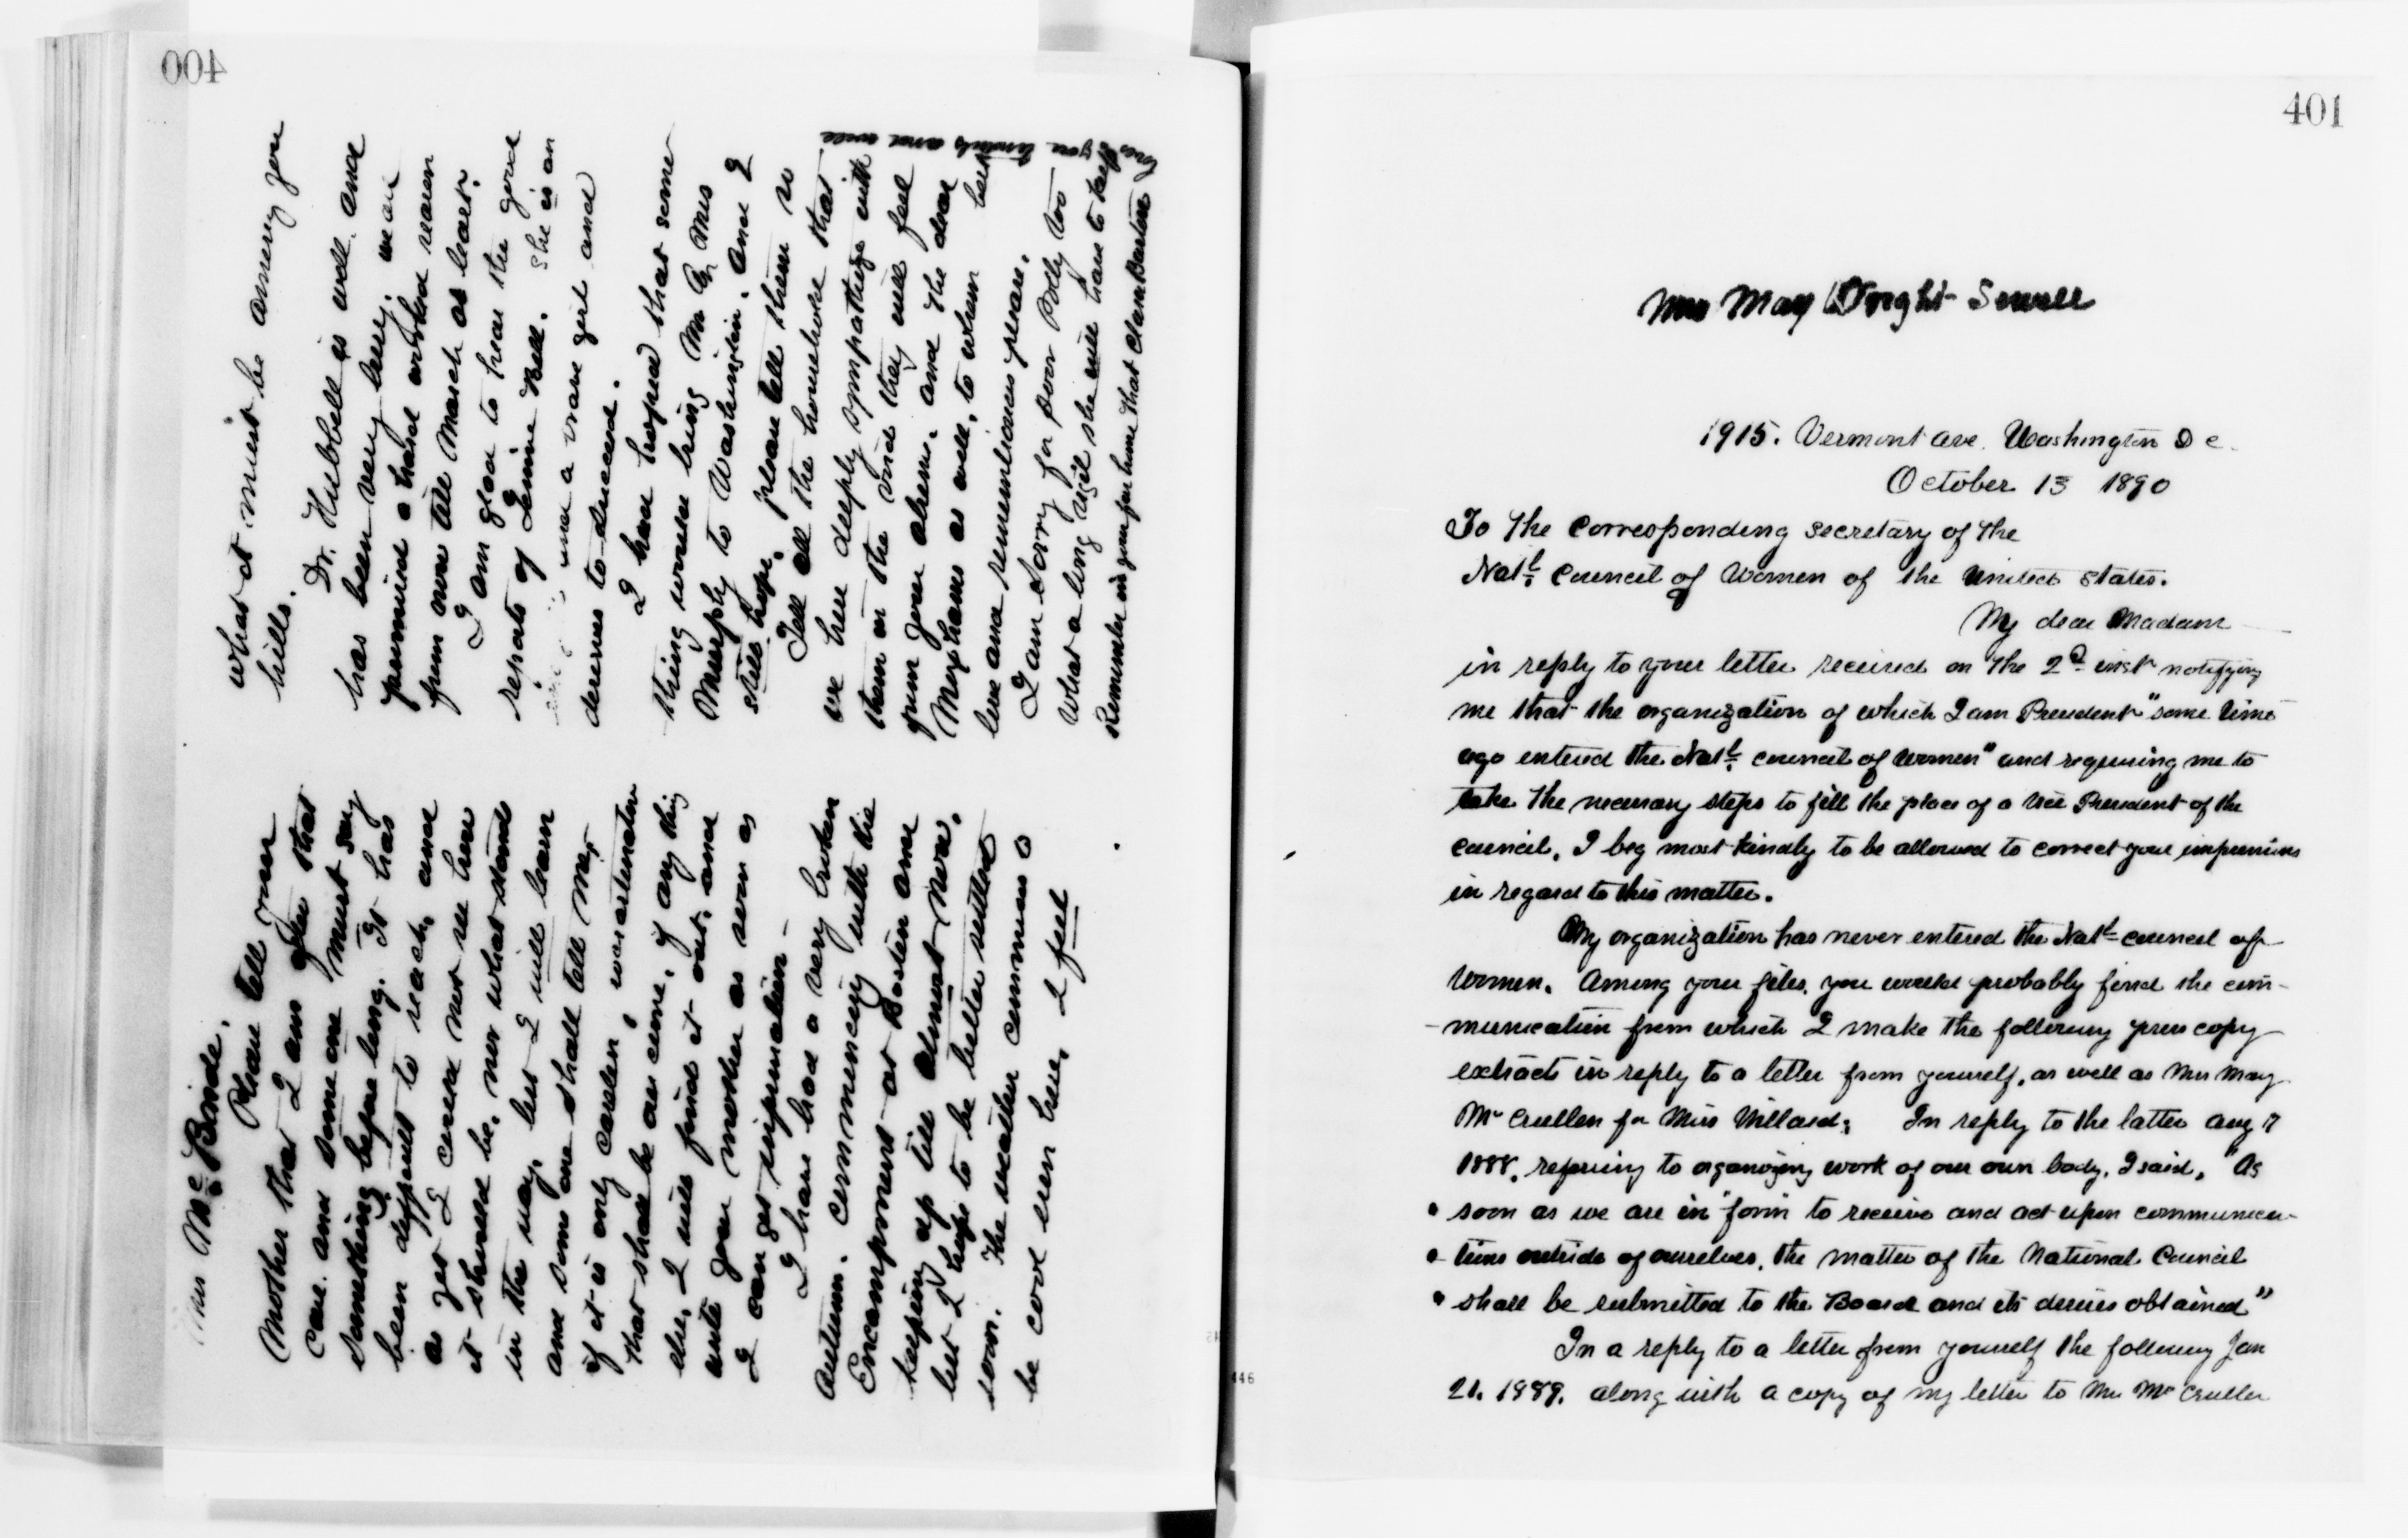 400
Mrs McBride.
Please tell your
Mother that I am glad that
care and some one must say
something before long. It has
been difficult to reach, and
as yet I could not see how
it should be, nor what stands
in the way, but I will learn
and some one shall tell me,
if it is only careless
that shall be overcome, if any thing
else, I will find it out, and
write your mother as soon as
I can get information –
I have had a very broken
Autumn. commencing with the
Encampment at Boston and
keeping up till almost now.
but I hope to be better settled
soon. The weather continues
be cool even here, I feel
what it must be among your
hills.
Dr. Hubbell is well and
has been very busy. we are
promised a hard worked season
from now till March at least.
I am glad to hear the good
reports of Lennie Bell. She is an
and a brave girl and
deserves to succeed.
I had hoped that some
thing would bring Mr & Mrs
Murphy to Washington. and I
still hope, please tell them so
Tell all the household that
we here deeply sympathize with
them in the void they will feel
from your absence. and the dear
as well, to whom
love and remembrances please.
I am sorry for poor Polly too
What a long vigil she will have to keep
Remember in your far home that Clara Barton
loves you tenderly and well
401
Mrs May Wright Sewall
1915. Vermont Ave. Washington D C.
October 13 1890
To the Corresponding Secretary of the
Natl. Council of Women of the United States.
My dear Madam
in reply to your letter received on the 2d inst notifying
me that the organization of which I am President "some time
ago entered the Natl. council of Women" and requiring me to
take the necessary steps to fill the place of a Vice President of the
Council, I beg most kindly to be allowed to correct your impressions
in regard to this matter.
My organization has never entered the Natl council of
Women. Among your files, you would probably find the com-
-munication from which I make the following press copy
extracts in reply to a letter from yourself, as well as Mrs May
McCrullen for Miss Willard; In reply to the latter Aug 7
1888, referring to organizing work of our own body, I said, "As
" soon as we are in form to receive and act upon communica-
"- tions outside of ourselves, the matter of the National Council
" shall be submitted to the Board and its desires obtained"
In a reply to a letter from yourself the following Jan
21. 1889. along with a copy of my letter to Mrs McCruller
446